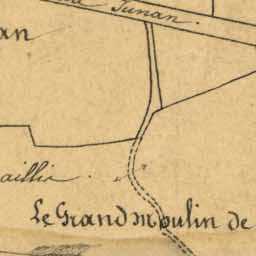 Junan.
an
aillis
Le Grand moulin de